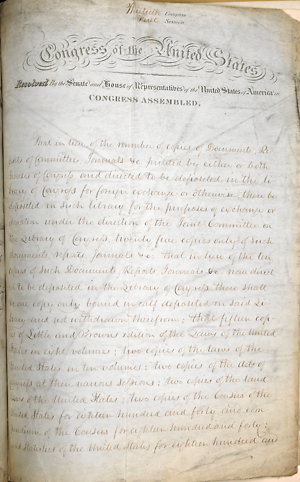 Thirtieth Congress
First Session
Congress of the United States
Resolved By the Senate and House of Representatives of the United States of America in
CONGRESS ASSEMBLED,
That in lieu of the number of copies of Documents Re-
of Committee Journals &c printed by either or both
of Congress and directed to be deposited in the Li-
of Congress for foreign exchange or otherwise there be
deposited in such Library for the purposes of exchange or
under the direction of the Joint Committee on
the Library of Congress, twenty five copies only of such
Documents, reports Journals &c. That in lieu of the ten
copies of such Documents, Reports Journals &c now direct
to be deposited in the Library of Congress there shall
one copy only bound in calf deposited in said Li-
and not withdrawn therefrom; That fifteen cop-
of Little and Brown's edition of the Laws of the United
States in eight volumes; Two copies of the laws of the
United States in ten volumes; Two copies of the acts of
Congress at their various sessions; Two copies of the land
Laws of the United States; Two copies of the Census of the
United States for eighteen hundred and forty one com
of the Census for eighteen hundred and forty
and statistics of the United States for eighteen hundred and